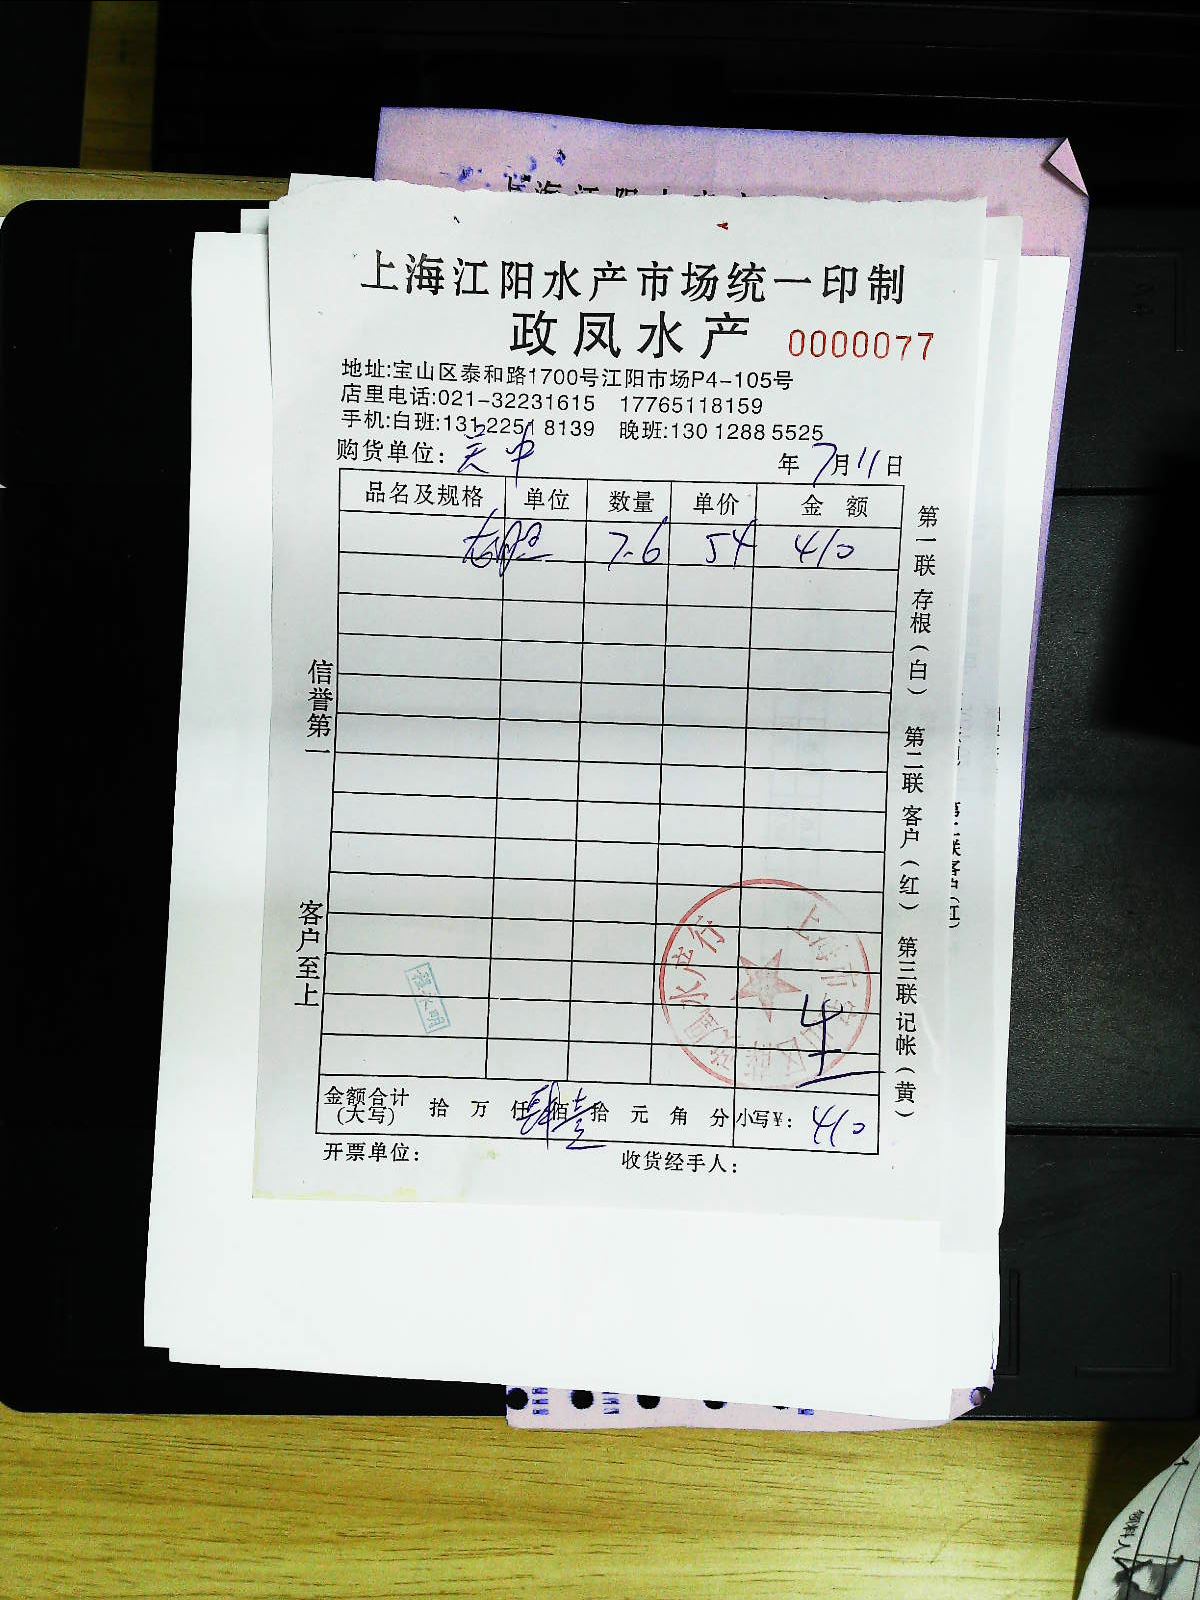 上海江阳水产市场统一印制
政凤水产 0000077
地址:宝山区泰和路1700号江阳市场P4-105号
店里电话:021-32231615 17765118159
手机:白班:131 2251 8139 晚班:130 1288 5525
购货单位: 关中 年 7月11日
品名及规格 单位 数量 单价 金额
7.6 54 410
金额合计(大写) 拾 万 仟 肆佰 壹拾 元 角 分 小写¥: 410
开票单位: 收货经手人:
信誉第一
客户至上
第一联 存根(白) 第二联 客户(红) 第三联 记帐(黄)
水产行
上海市宝山区
第二联 客户(红)
领料人